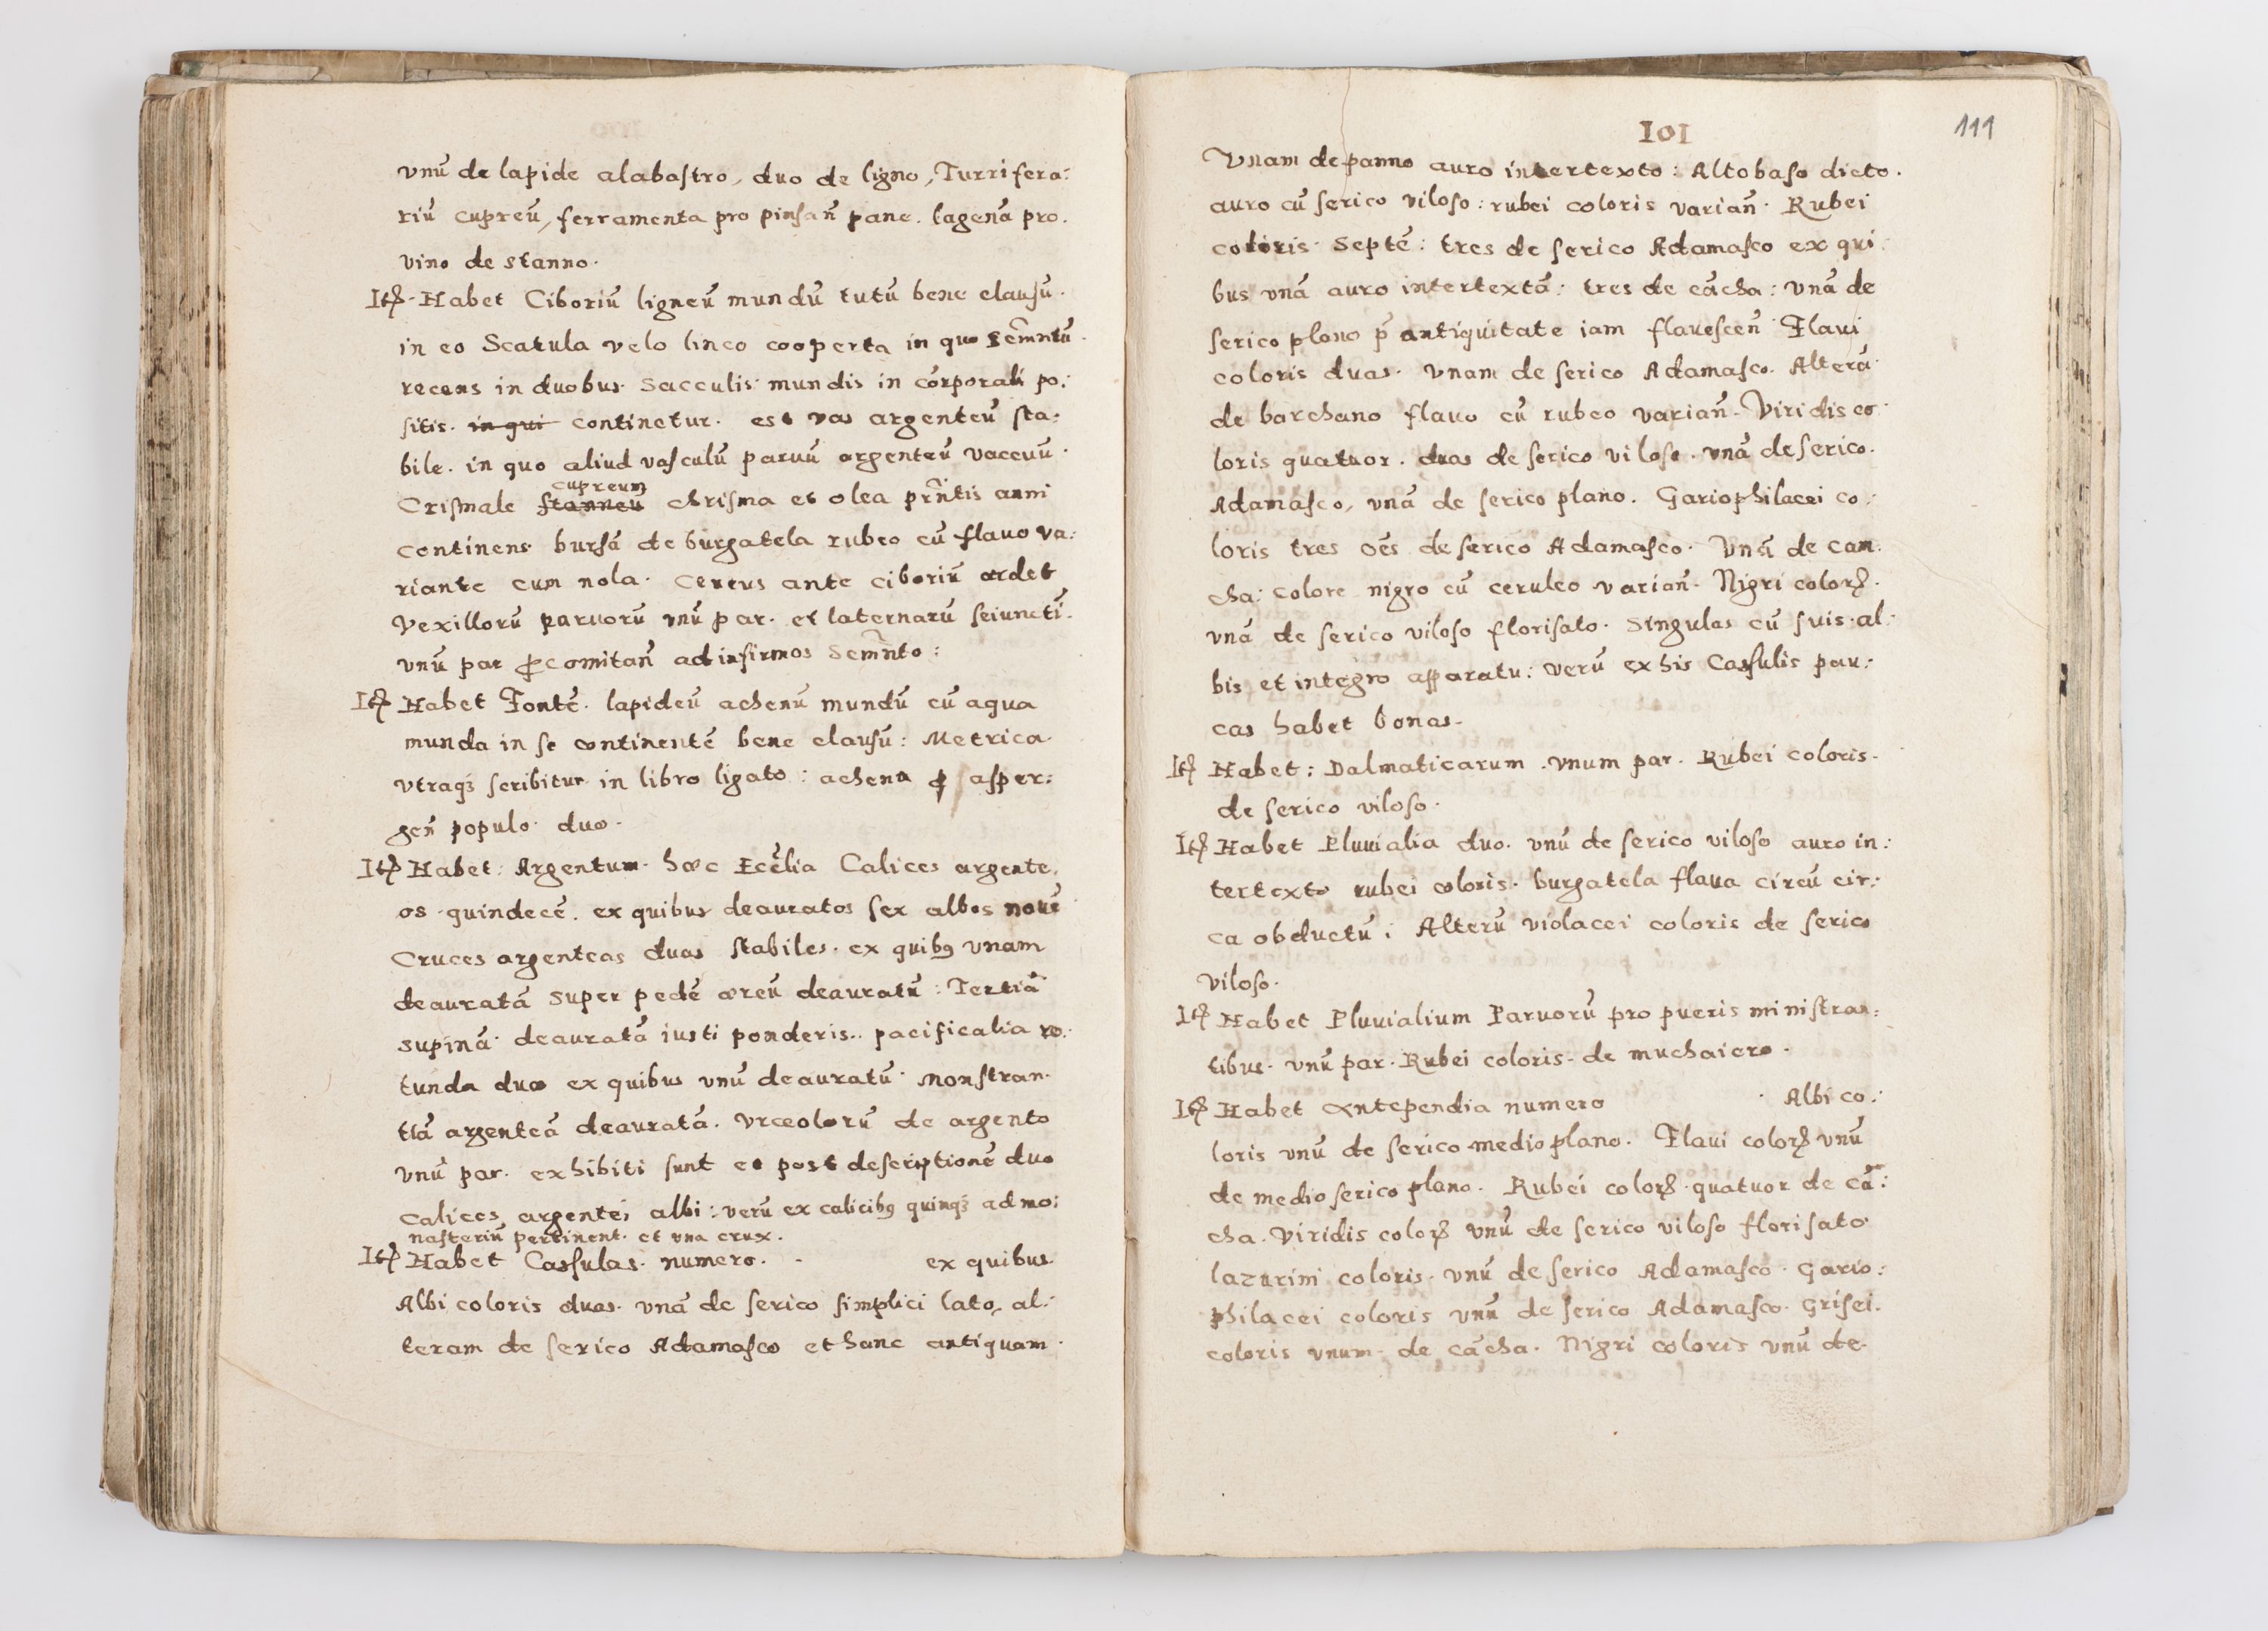 vnũ de lapide alabastro, duo de ligno, Turrifera:
riũ cupreũ, ferramenta pro pinsañ pane. lagenã pro.
vino de stanno.
Itꝫ. Habet Ciboriũ ligneũ mundũ tutũ bene clausũ.
in eo Scatula velo lineo cooperta in quo Semñtũ.
recens in duobus sacculis mundis in corporali po:
sitis. in qui continetur. est vas argenteũ sta:
bile. in quo aliud vasculũ paruũ argenteũ vaccuũ.
cupreum
Crismale stanneũ chrisma et olea prñtis anni
continens bursã de burgatela rubeo cũ flauo va:
riante cum nola. Cereus ante ciboriũ ardet
Vexillorũ paruorũ vnũ par. et laternarũ seiunctĩ.
vnũ par ꝓ comitañ ad infirmos Semñto:
Itꝫ Habet Fontẽ. lapideũ achenũ mundũ cũ aqua
munda in se continentẽ bene clausũ: Metrica
vtraqꝫ scribitur in libro ligato: achena ꝓ asper:
geñ populo duo.
Itꝫ Habet: Argentum. hæc Eccẽlia Calices argente.
os quindecẽ. ex quibus deauratos sex albos nouẽ
Cruces argenteas duas stabiles. ex quibꝰ vnam
deauratã super pedẽ æreũ deauratũ: Tertiã
supinã deauratã iusti ponderis.. pacificalia ro:
tunda duo ex quibus vnũ deauratũ. Monstran.
tiã argenteã deauratã. vrceolorũ de argento
vnũ par. exhibiti sunt et post descriptionẽ duo
calices argentei albi: verũ ex calicibꝰ quinqꝫ ad mo:
nasteriũ pertinent. et vna crux.
Itꝫ Habet Cassulas. numero. - ex quibus.
Albi coloris duas. vnã de serico simplici lato, al:
teram de serico Adamasco et hanc antiquam.
101
111
Vnam de panno auro intertexto: Altobaso dicto.
auro cũ serico viloso: rubei coloris variañ. Rubei
coloris. Septẽ: tres de serico Adamasco ex qui:
bus vnã auro intertextã: tres de cãcha: vnã de
serico plano p̃ antiquitate iam flauesceñ Flaui
coloris duas. vnam de serico Adamasco. Alterã
de barchano flauo cũ rubeo variañ. Viridis co:
loris quatuor. duas de serico viloso. vnã de serico.
Adamasco, vnã de serico plano. Gariophilacei co:
loris tres oẽs de serico Adamasco. Vnã de can:
cha: colore nigro cũ ceruleo variañ. Nigri colorꝫ.
vnã de serico viloso florisato. Singulas cũ suis al:
bis et integro apparatu: verũ ex his Cassulis pau:
cas habet bonas.
Itꝫ Habet: Dalmaticarum. vnum par. Rubei coloris.
de serico viloso.
Itꝫ Habet Pluuialia duo. vnũ de serico viloso auro in:
tertexto rubei coloris. burgatela flaua circũ cir:
ca obductũ: Alterũ violacei coloris de serico
viloso.
Itꝫ Habet Pluuialium Paruorũ pro pueris ministran:
tibus. vnũ par. Rubei coloris. de muchaiero.
Itꝫ Habet antependia numero . Albi co:
loris vnũ de serico medio plano. Flaui colorꝫ vnũ
de medio serico plano. Rubei colorꝫ quatuor de cã:
cha. Viridis colorꝫ vnũ de serico viloso florisato
lazurini coloris. vnũ de serico Adamasco. Gario:
philacei coloris vnũ de serico Adamasco. Grisei.
coloris vnum de cãcha. Nigri coloris vnũ de.